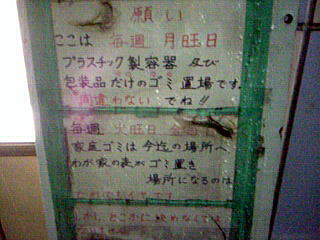 願い
ここは 毎週 月旺日
プラスチック製容器 及び
包装品だけのゴミ置場です。
間違わない でね!!
毎週 火旺日 金
家庭ゴミは今迄の場所へ
わが家の表がゴミ置き
場所になるのは
しかし、どこかに決めなくては